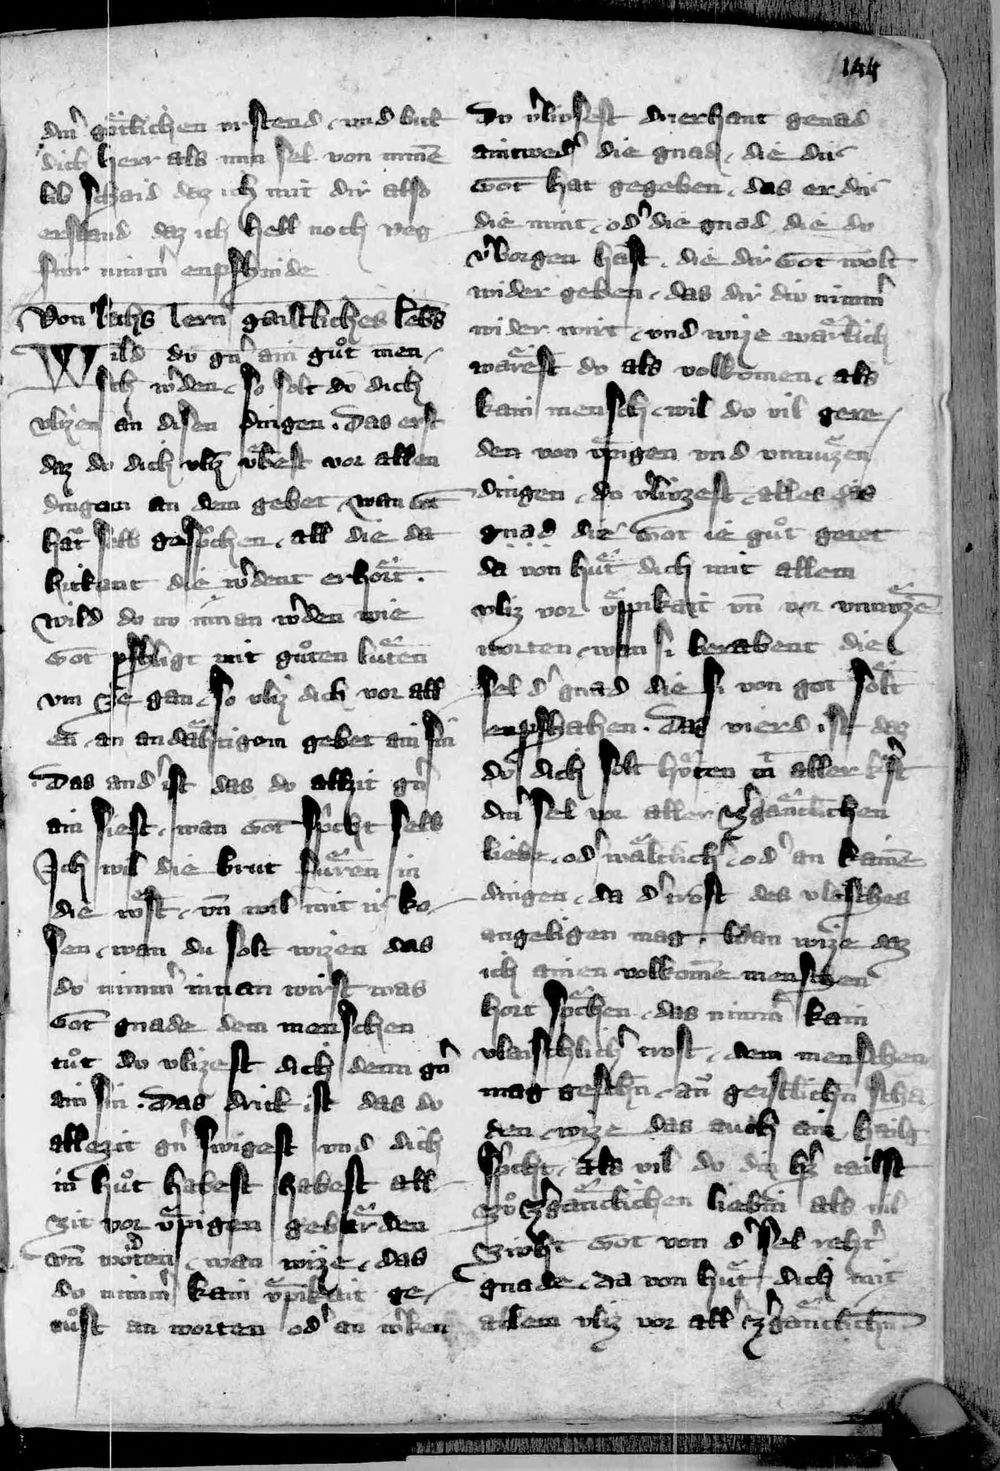 144
din̾ götlichen vrstend . vnd bit
dich herr als min sel von minē
lib schaid daz ich mit dir also
erstand daz ich hell noch veg
fúr nimm̾ enpfhinde
Von sechs lern gaistliches lebēs
Wild du gn̾ ain guͦt men
sch w̾den . so solt du dich
vlizen an disen dingen . Das erst
daz du dich vliz vͤbest vor allen
dingen an dem gebet . wan got
hat selb gesprochen . all die da
bitkant die w̾dent erhört .
Wild du nu innan w̾den wie
Got pfligt mit guͦten lúten
vm ze gan . so vliz dich vor all
en . an andähtigem gebet ain sin
Das and̾ ist das du allzit gn̾
ain siest . wan Got spricht selb
Jch wil die brut fúren in
die wͤst . vn̄ wil mit ir ko
sen . wan du solt wizen das
du nimm̾ innan wirst was
Got gnade dem menschen
tuͦt du vlizest dich denn gn̾
ain sin . Das drit ist das du
allezit gn̾ swigest vnd dich
in huͦt habest habest all
zit vor v̈pigen gebärden
vn̄ wörten . wan wize . das
du nimm̾ kain v̈pikait ge
tuͦst an worten od̾ an w̾ken
Du v̾lúrsest drierhant genad
aintwed̾ die gnad . die dir
Got hat gegeben . das er dir
die nimt . od̾ die gnad die du
v̾borgen hast . die dir Got wolt
wider geben . das dir diu nimm̾
wider wirt . vnd wize wärlich
wärest du als volkomen . als
kain mensch . wil du vil gere
den von v̈pigen vnd vnnúzen
dingen . du v̾lúrzest . alles das
gnad die Got ie guͦt getet
da von huͤt dich mit allem
vliz vor v̈ppikait vn̄ vor vnnúzē
worten . wan si berabent die
sel d̾ gnad die si von got solt
enpfhahen . Das vierd ist daz
du dich solt huͤten in̄ aller k̾ft
din̾ sel vor aller zergänclichen
liebe . od̾ wältlich̾ . od̾ an kainē
dingen . da d̾ trost des vlaisches
angeligen mag . wan wize daz
ich ainen volkomē menschen
hort sprechen . das nimm̾ kain
vlaischlich̾ trost . dem menschen
mag geschehn̄ . an̄ geistlichn̄ scha
den . wize das auch ain hailg
spricht . als vil du din h̾z tailst
zuͦ zergänclichen liebin als vil
zúht Got von d̾ sel reht̾
gnade . da von huͤt dich mit
allem vliz vor all̾ zergänclichn̄